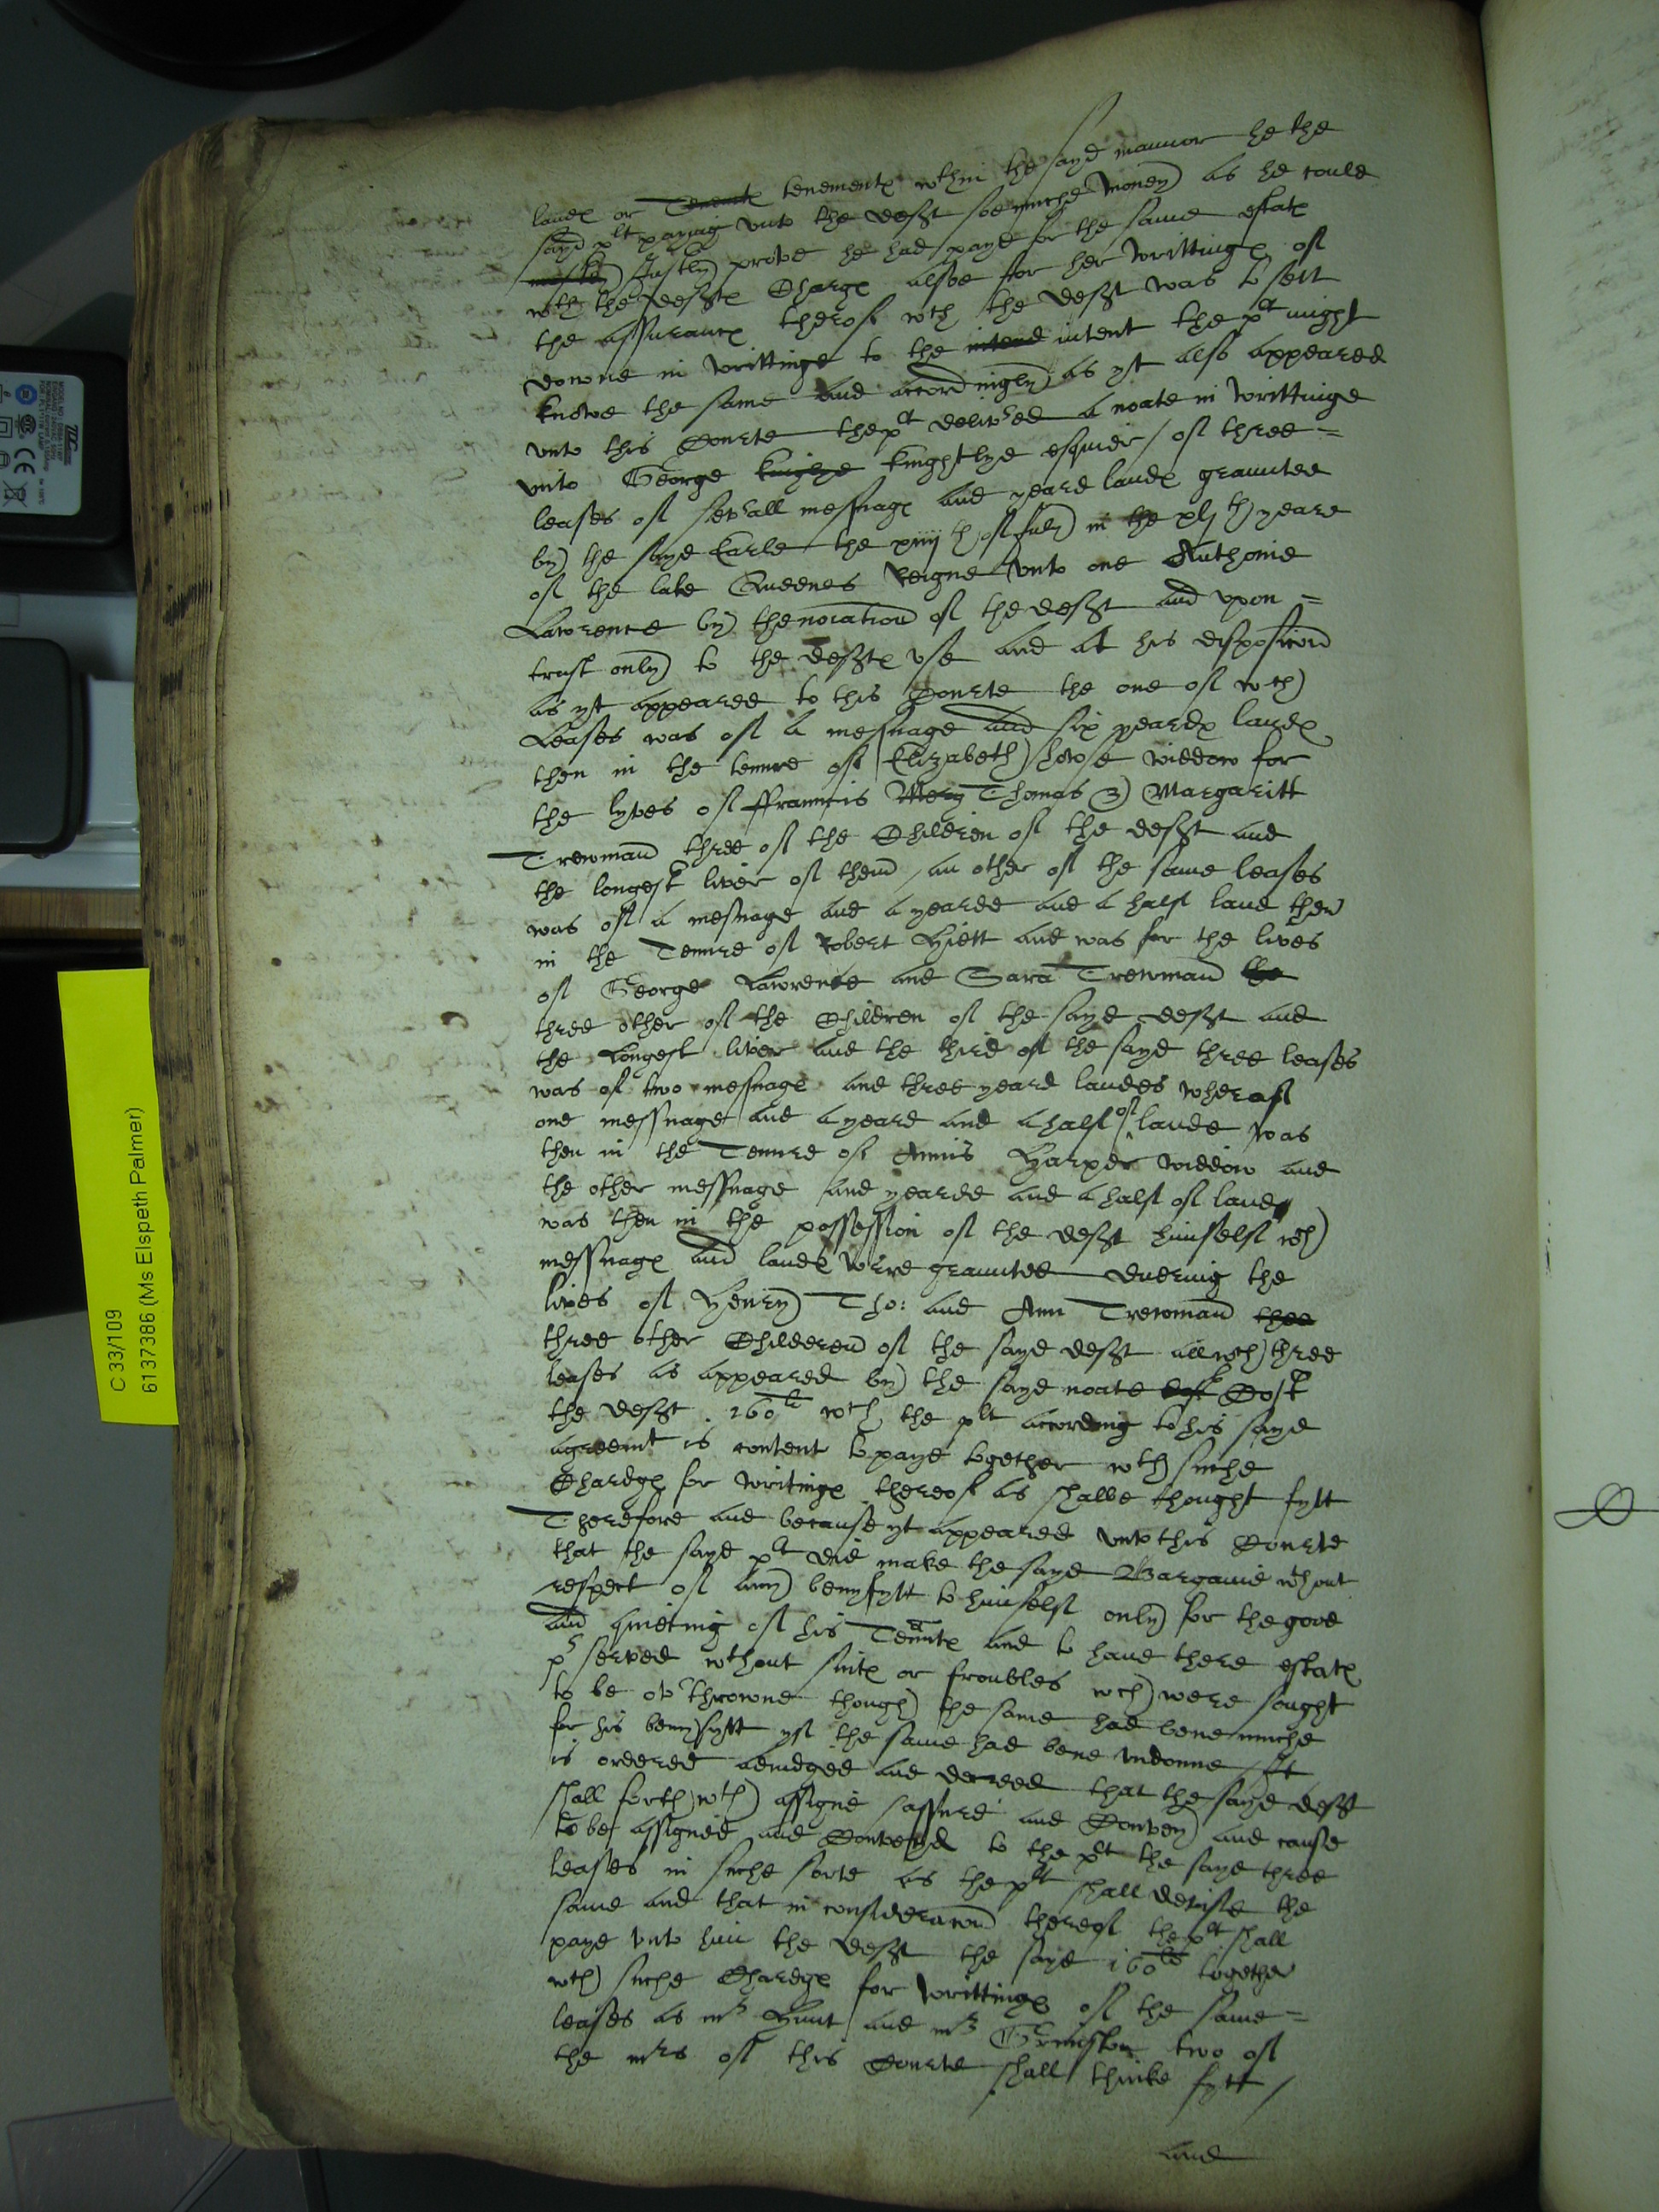 landes or Tenemtes tenementes wthin the sayd mannor he the
sayd plt paying unto the deft soe muche money as he could
Justly prove he had payd for the same estate
wth the deftes Charges alsoe for her writtinges of
the assurance therof wch the deft was to sett
downe in writtinge to the intend intent the plt might
knowe the same And accordingly as yt also appeared
unto this Courte the plt delivered a noate in writtinge
unto George Knightlye Knightlye esquier / of three =
leases of severall messuages and yeard landes graunted
by the sayd Earle the xiiijth of July in the xljth yeare
of the late Queenes Reigne unto one Anthonie
Lawrence by the nominacion of the deft and upon =
trust only to the deftes use and at his disposicion
as yt appeared to this Courte the one of wch
Leases was of a messuage and six yeardes landes
then in the tenure of Elizabeth widdow for
the lyves of ffrauncis Mary Thomas & Margaritt
Trewman three of the Children of the deft and
the longest liver of them / an other of the same leases
was of a messuage and a yearde and a half land then
in the Tenure of Robert Hiett and was for the lives
of George Lawrence and Sara Trewman the
three other of the Children of the sayd deft and
the Longest liver and the third of the sayd three leases
was of two messuages and three yeard landes wherof
one messuage and a yeard and a half of lande was
then in the Tenure of Annis Harper widdow and
the other messuage and yearde and a half of land
was then in the possession of the deft himself wch
messuages and landes were graunted duering the
lives of Henry Tho: and Ann Trewman thee
three other Childeren of the sayd deft all wch three
leases as appeared by the sayd noate cost Cost
the deft 160li wch the plt according to his sayd
agreemt is content to paye together wth suche
Chardges for writinges thereof as shalbe thought fytt
Therefore and because yt appeared unto this Courte
that the sayd plt did make the sayd Bargaine wthout
respect of any benyfytt to himself only for the good
and quieting of his Tenntes and to have there estates
pserved wthout suites or troubles wch were sought
to be overthrowne though the same had bene muche
for his benyfytt yf the same had bene undonne / It
is ordered adiudged and decreed that the sayd deft
shall forthwth assigne assure and Convey and cause
to be assigned and Conveyd to the plt the sayd three
leases in suche sorte as the plt shall devise the
same and that in consideracion thereof the plt shall
paye unto him the deft the sayd 160li together
wth suche Chardges for writtinges of the same =
leases as mr Hunt and mr Grimston two of
the mrs of this Courte shall thinke fytt /
and
C 33/109
6137386 (Ms Elspeth Palmer)